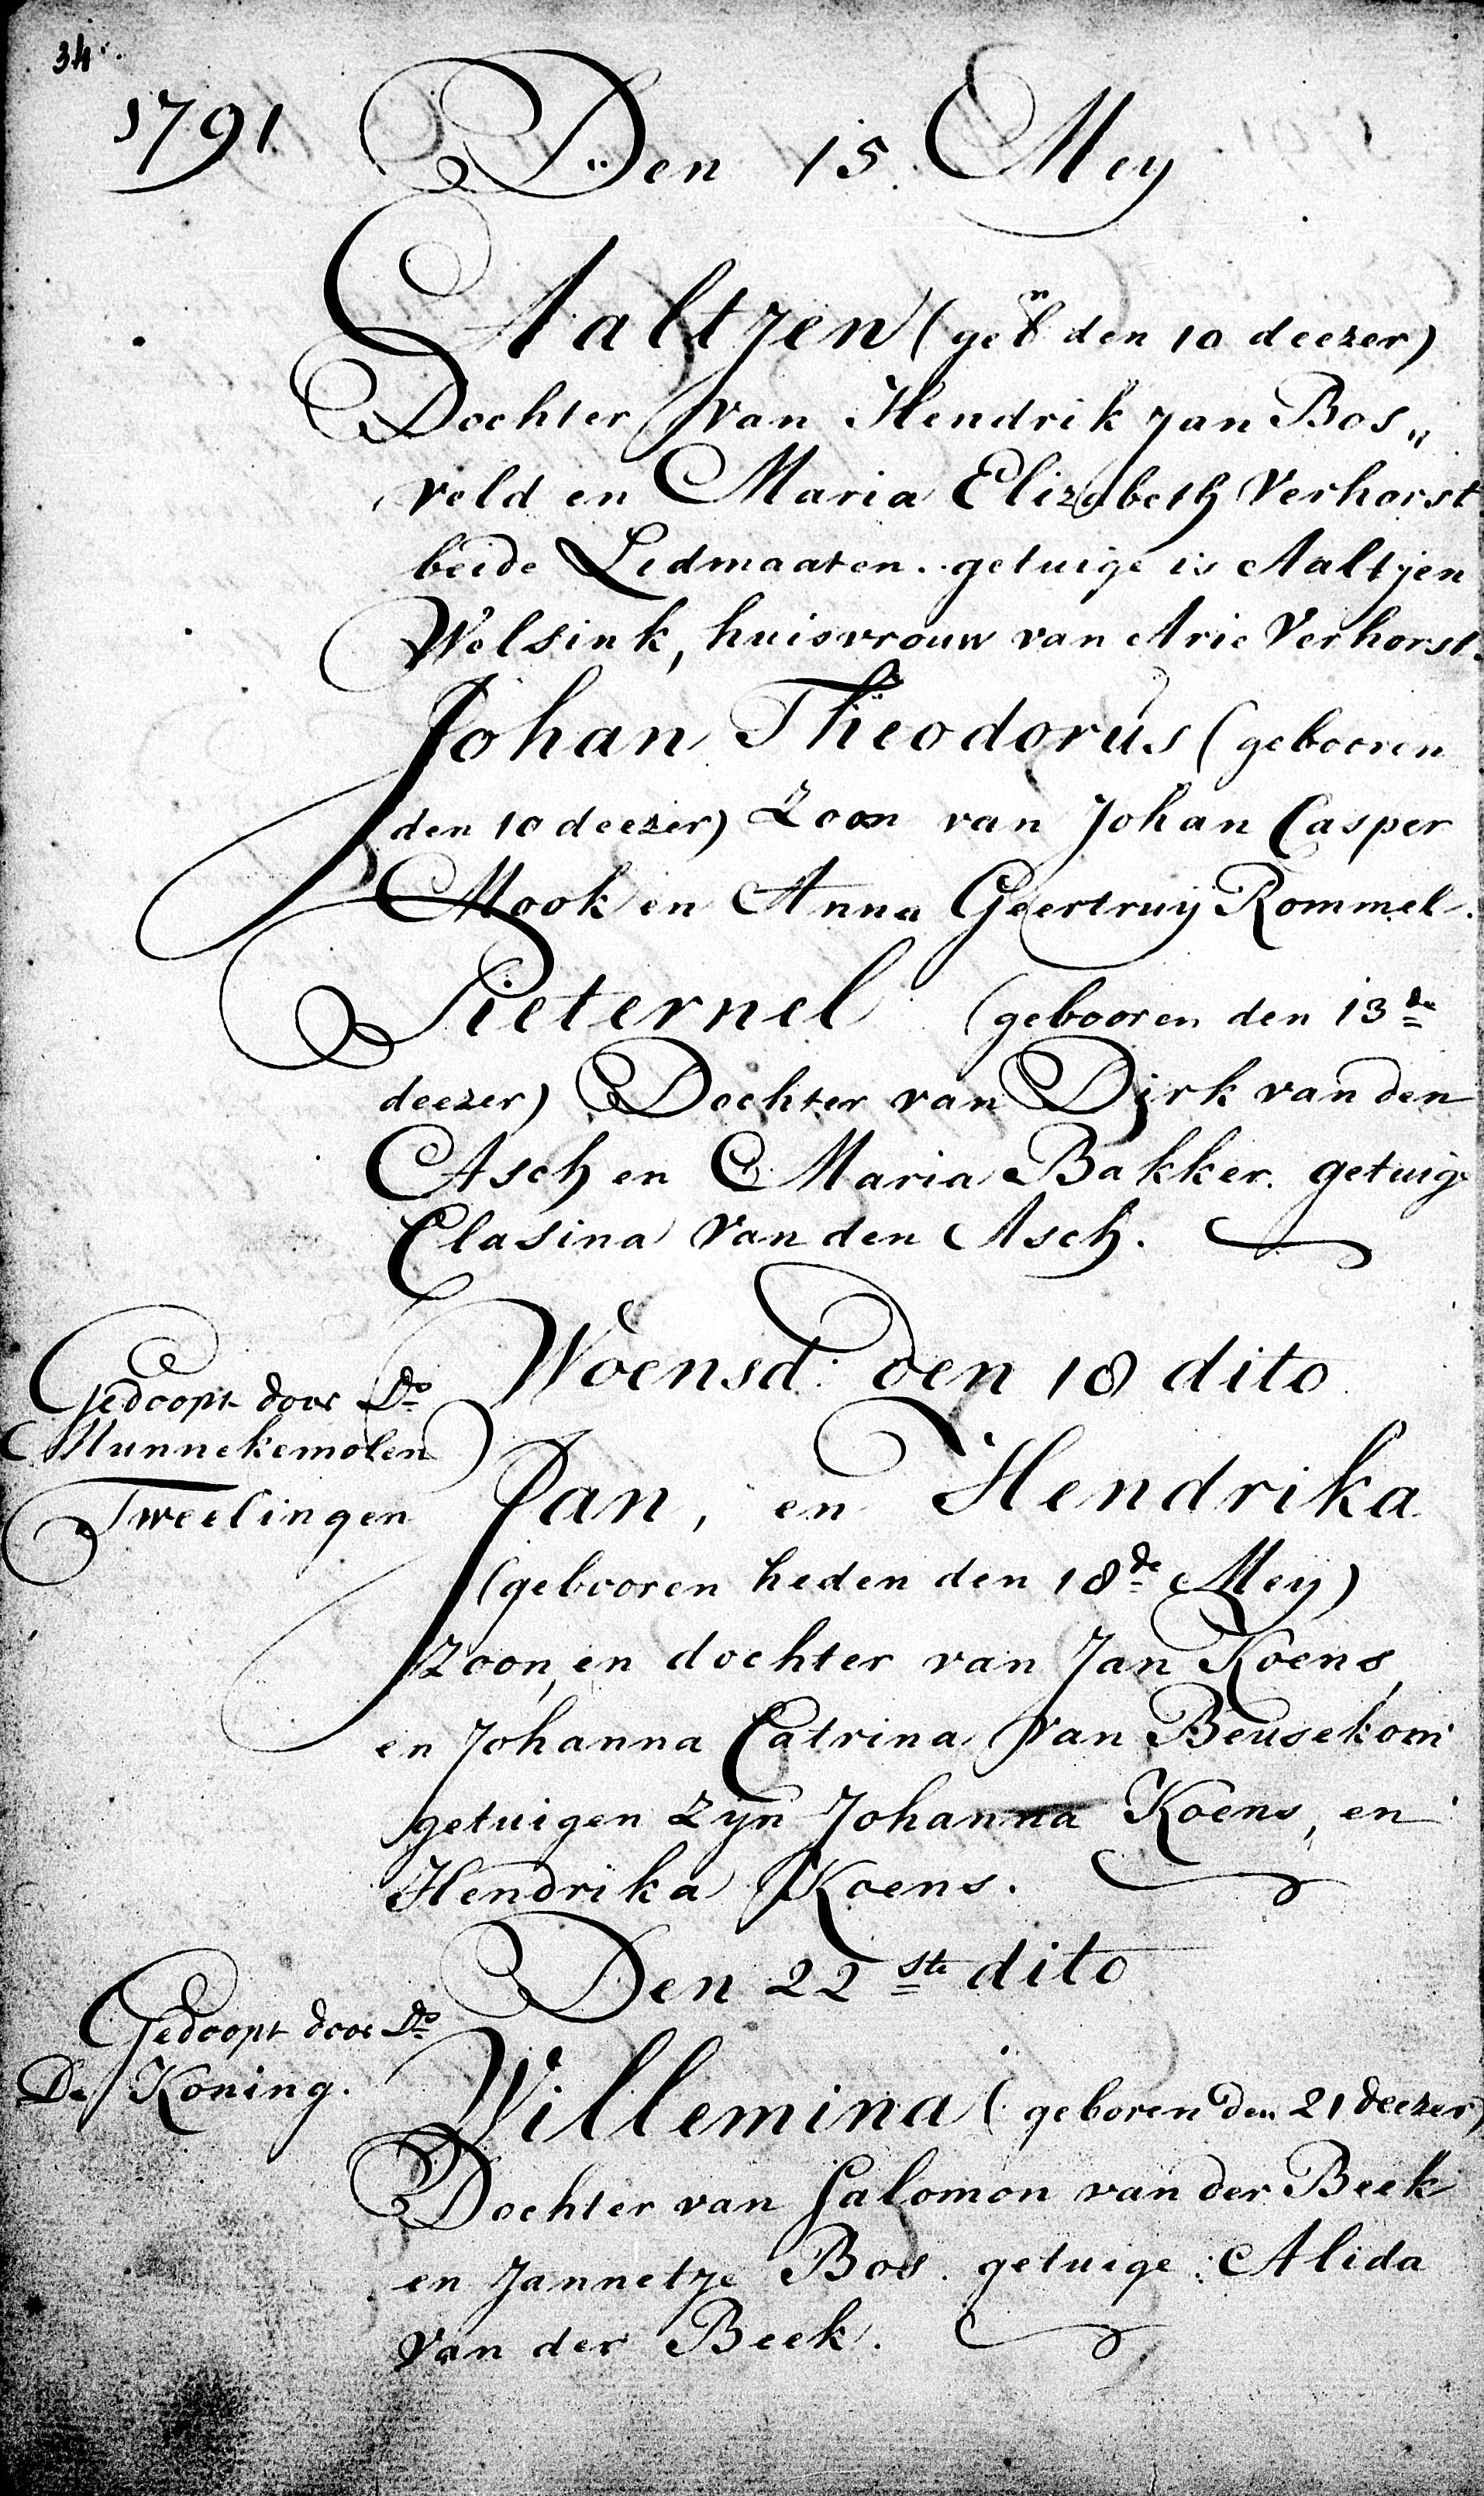 34.
1791 Den 15. Mey
Aaltjen (geb^n den 10 deezer)
Dochter van Hendrik Jan Bos„
veld en Maria Elizabeth Verhorst
beide Ledmaaten. getuige is Aaltjen
Welsink, huisvrouw van Arie Verhorst.
Johan Theodorus (gebooren
den 10 deezer) Zoon van Johan Casper
Mook en Anna Geertruy Rommel.
Pieternel (gebooren den 13de
deezer) Dochter van Dirk van den
Asch en Maria Bakker. getuige
Clasina van den Asch.
Woensd. den 18 dito
Gedoopt door Do
Munnekemolen
Tweelingen
Jan, en Hendrika
(gebooren heden den 18de Mey)
zoon, en dochter van Jan Koens,
en Johanna Catrina van Beusekom
getuigen zyn Johanna Koens, en
Hendrika Koens.
Den 22ste dito
Gedoopt door Do
De Koning.
Willemina (geboren den 21 deezer)
Dochter van Salomon van der Beek
en Jannetje Bos. getuige: Alida
van der Beek.